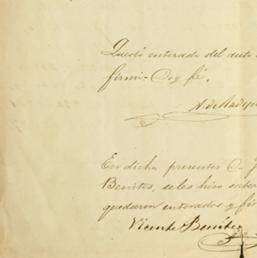 Quedó enterado del auto
firmó. Doy fé.
En dicha presentes C. J
Benites, se les hizo
quedaron enterados y fir
Vicente Benitez